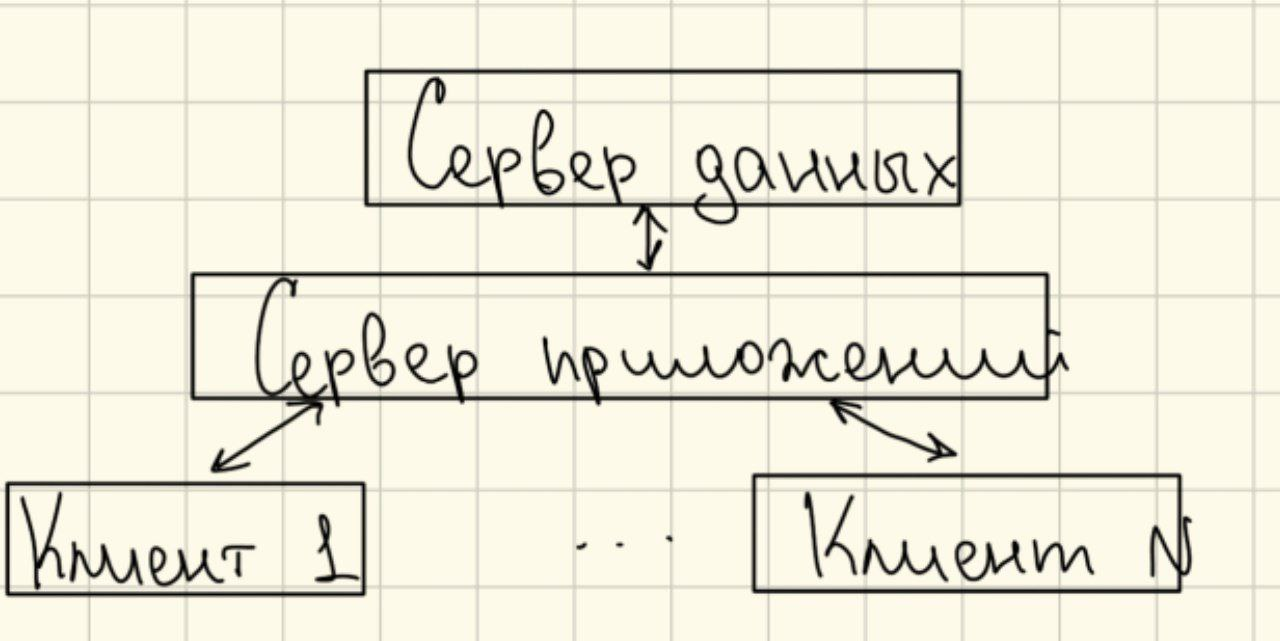 Сервер данных
Сервер приложений
Клиент 1
...
Клиент N